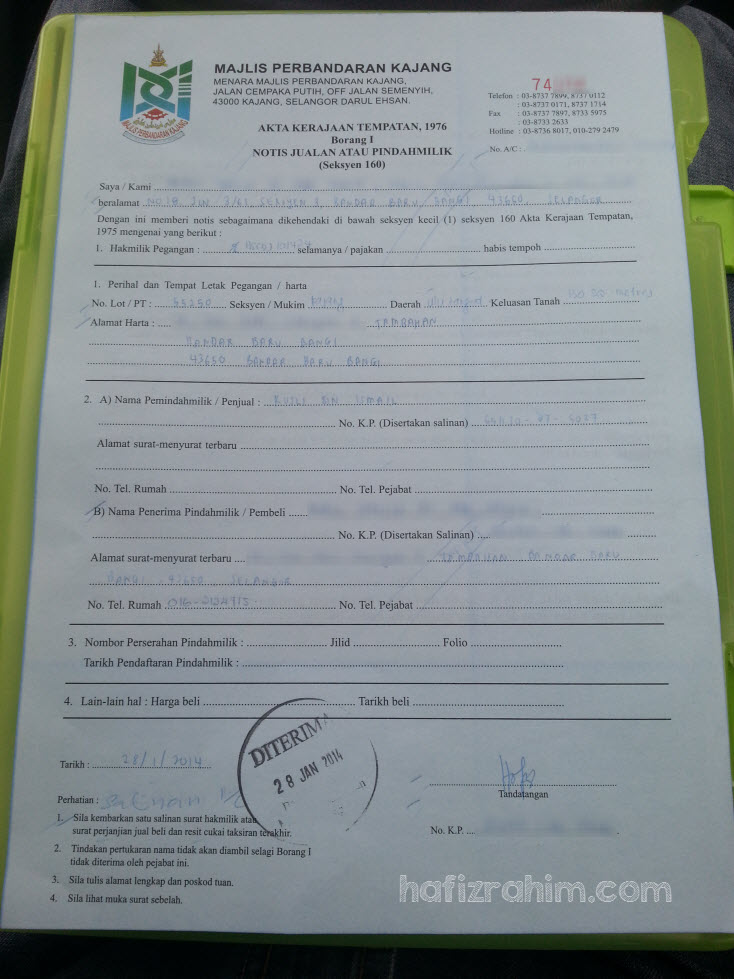 MAJLIS PERBANDARAN KAJANG
MAJLIS PERBANDARAN KAJANG
MENARA MAJLIS PERBANDARAN KAJANG,
JALAN CEMPAKA PUTIH, OFF JALAN SEMENYIH,
43000 KAJANG, SELANGOR DARUL EHSAN.
74
Telefon : 03-8737 7899, 8737 0112
: 03-8737 0171, 8737 1714
Fax : 03-8737 7897, 8733 5975
: 03-8733 2633
Hotline : 03-8736 8017, 010-279 2479
No. A/C :
AKTA KERAJAAN TEMPATAN, 1976
Borang I
NOTIS JUALAN ATAU PINDAHMILIK
(Seksyen 160)
Saya / Kami
beralamat BANDAR BARU BANGI 43650, SELANGOR
Dengan ini memberi notis sebagaimana dikehendaki di bawah seksyen kecil (1) seksyen 160 Akta Kerajaan Tempatan,
1975 mengenai yang berikut :
1. Hakmilik Pegangan : selamanya / pajakan habis tempoh
1. Perihal dan Tempat Letak Pegangan / harta
No. Lot / PT : Seksyen / Mukim Daerah Keluasan Tanah
Alamat Harta : TAMBAHAN
BANDAR BARU BANGI
43650 BANDAR BARU BANGI
2. A) Nama Pemindahmilik / Penjual : BIN ISMAIL
No. K.P. (Disertakan salinan)
Alamat surat-menyurat terbaru
No. Tel. Rumah No. Tel. Pejabat
B) Nama Penerima Pindahmilik / Pembeli
No. K.P. (Disertakan Salinan)
Alamat surat-menyurat terbaru TAMBAHAN BANDAR BARU
BANGI 43650 SELANGOR
No. Tel. Rumah No. Tel. Pejabat
3. Nombor Perserahan Pindahmilik : Jilid Folio
Tarikh Pendaftaran Pindahmilik :
4. Lain-lain hal : Harga beli Tarikh beli
DITERIMA
28 JAN 2014
Tarikh : 28/1/2014
Tandatangan
Perhatian :
1. Sila kembarkan satu salinan surat hakmilik atau
surat perjanjian jual beli dan resit cukai taksiran terakhir.
No. K.P.
2. Tindakan pertukaran nama tidak akan diambil selagi Borang I
tidak diterima oleh pejabat ini.
3. Sila tulis alamat lengkap dan poskod tuan.
4. Sila lihat muka surat sebelah.
hafizrahim.com